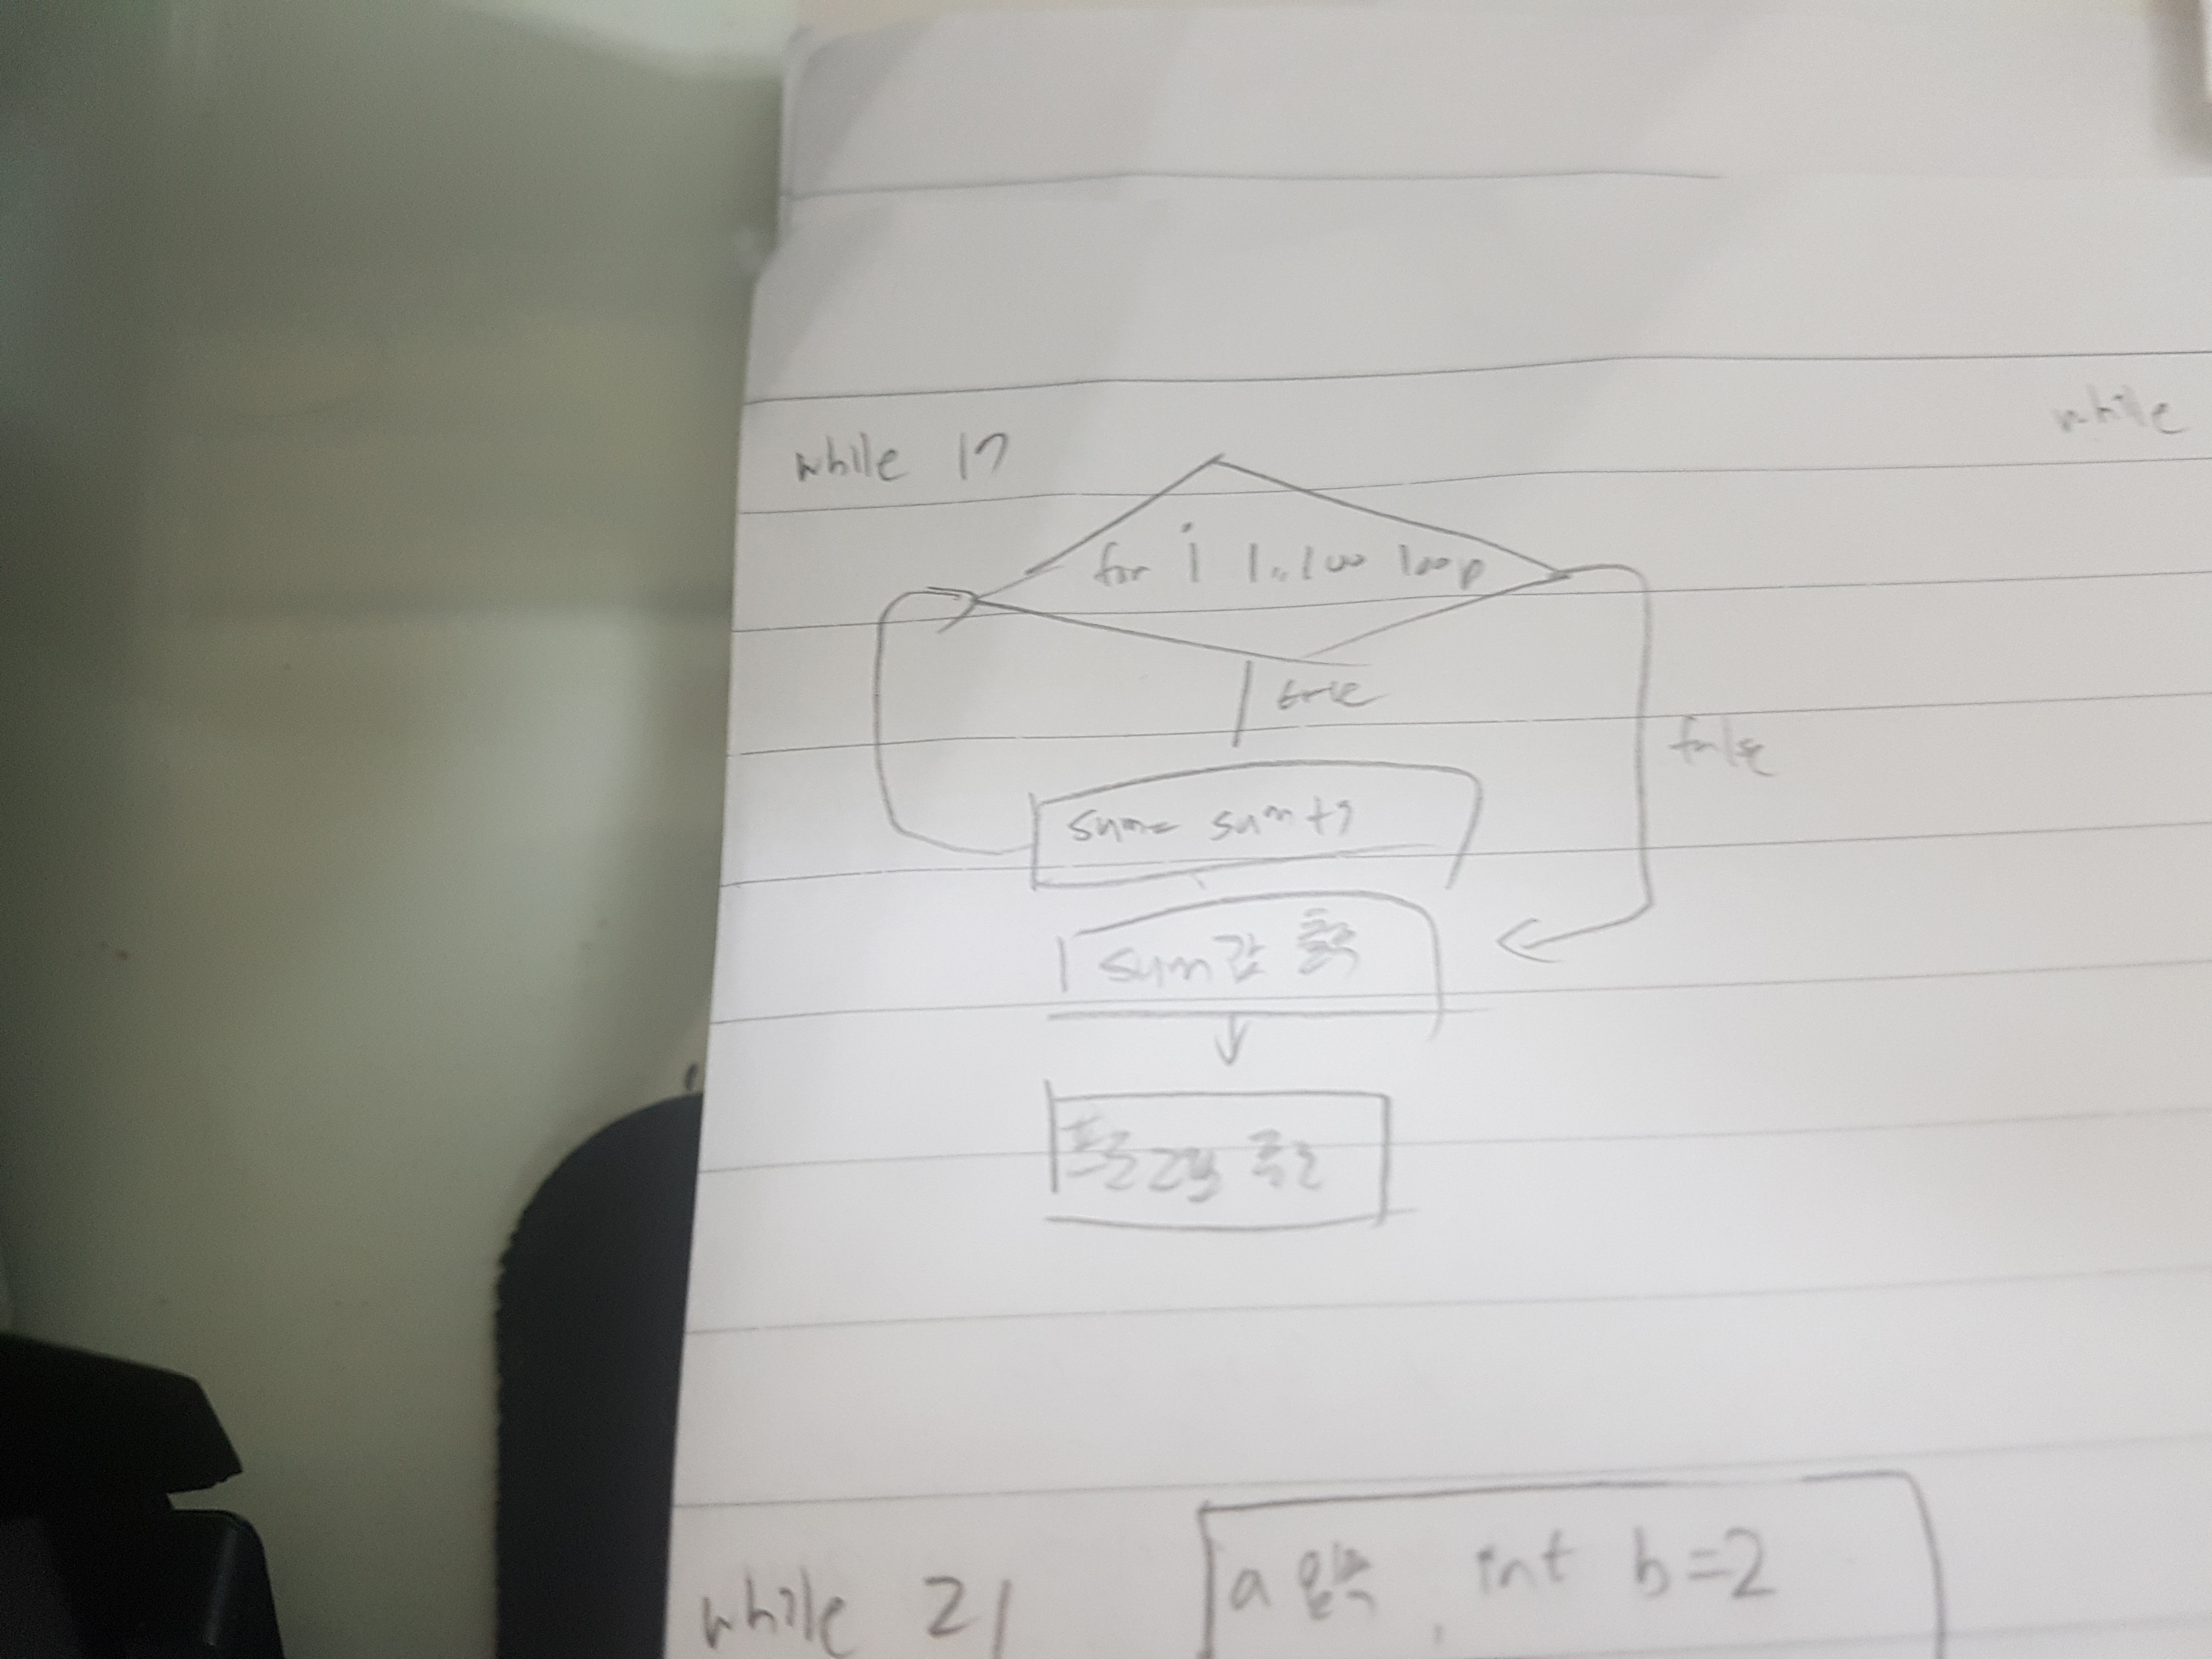 while 17
while
for i 1..100 loop
true
false
sum= sum+i
sum값 출력
프로그램 종료
while 21
a 입력, int b=2